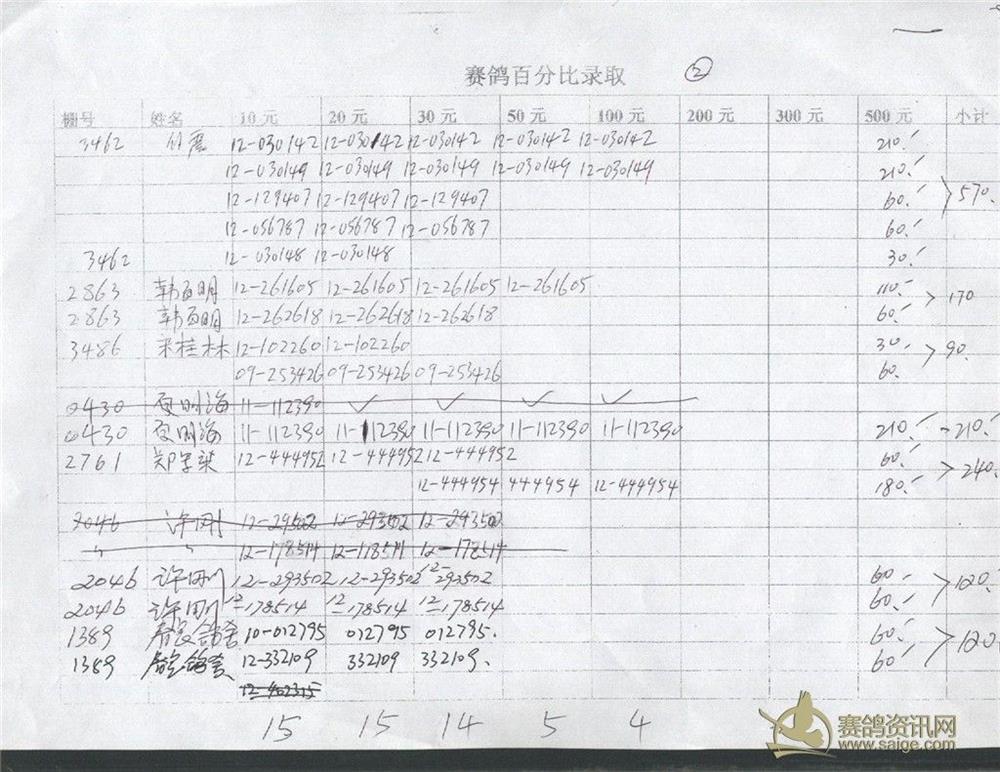 赛鸽百分比录取 ②
棚号 姓名 10元 20元 30元 50元 100元 200元 300元 500元 小计
3462 12-030142 12-030142 12-030142 12-030142 12-030142 210.-
12-030149 12-030149 12-030149 12-030149 12-030149 210.-
12-129407 12-129407 12-129407 60.- >570.
12-056787 12-056787 12-056787 60.-
3462 12-030148 12-030148 30.-
2863 韩 明 12-261605 12-261605 12-261605 12-261605 110.- >170
2863 韩 明 12-262618 12-262618 12-262618 60.-
3486 桂林 12-102260 12-102260 30.- >90.
09-253426 09-253426 09-253426 60.
0430 海 11-112390 ✓ ✓ ✓ ✓
0430 海 11-112390 11-112390 11-112390 11-112390 11-112390 210.- -210.-
2761 郑 12-444952 12-444952 12-444952 60.- >240.
12-444954 444954 12-444954 180.-
2046 许刚 12-29502 12-293502 12-293502
12-178514 12-178514 12-178514
2046 许刚 12-293502 12-293502 12-293502 60.- >120.
2046 许刚 12-178514 12-178514 12-178514 60.-
1389 10-012795 012795 012795. 60.- >120
1389 12-332109 332109 332109. 60.-
12-402315
15 15 14 5 4
赛鸽资讯网
www.saige.com